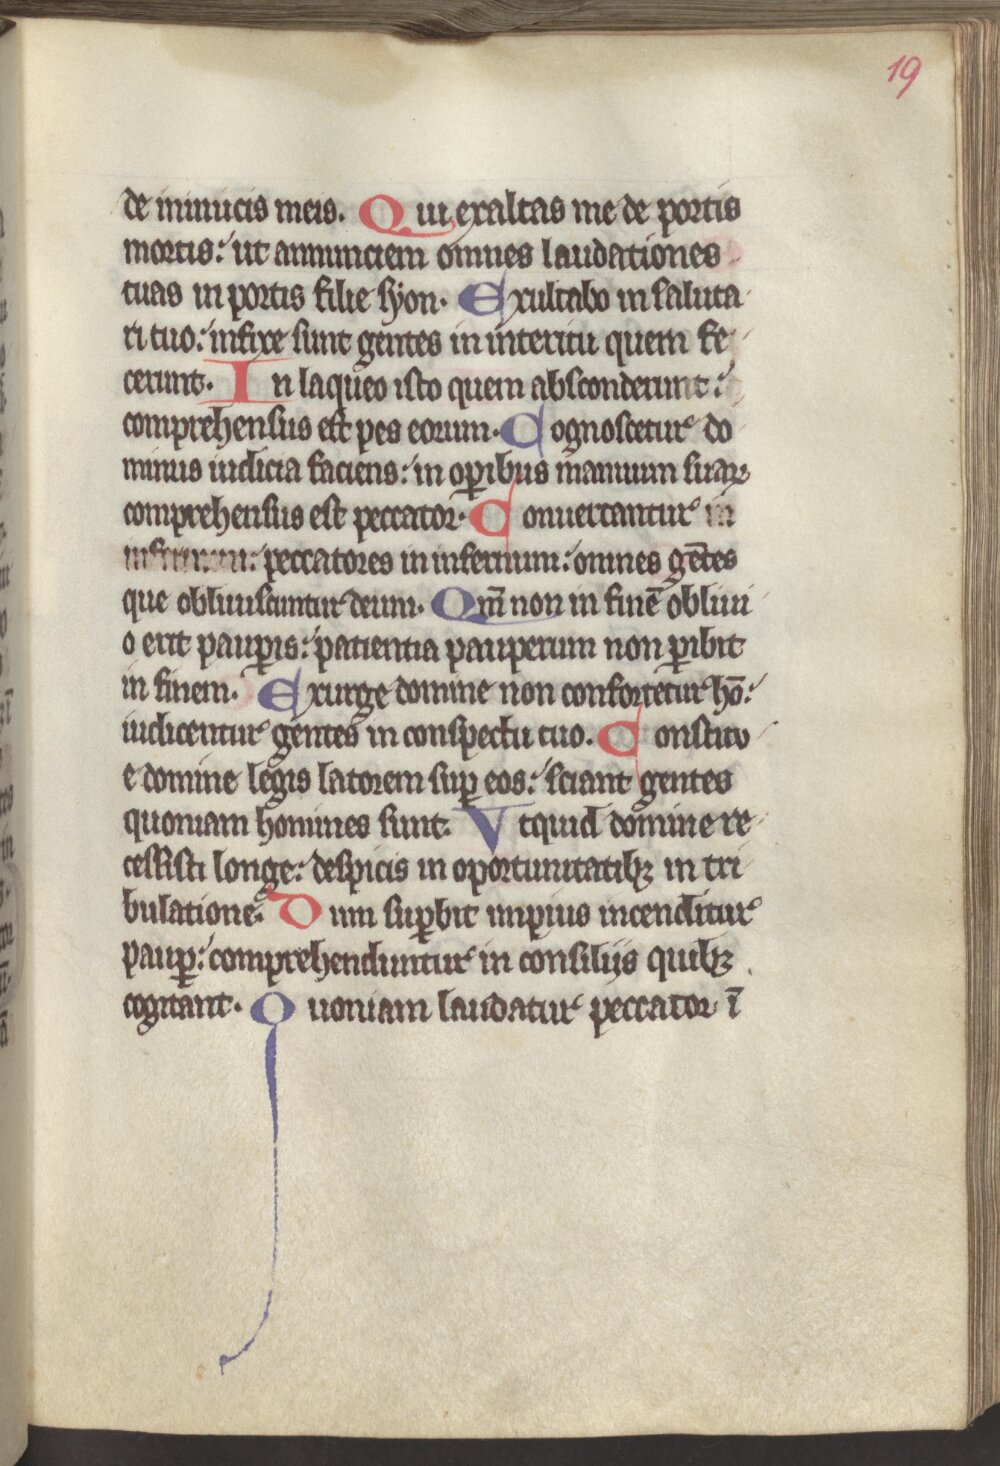 19
de inimicis meis. Qui exaltas me de portis
mortis: ut annunciem omnes laudationes
tuas in portis filie syon. Exultabo in saluta
ri tuo: infixe sunt gentes in interitu quem fe
cerunt. In laqueo isto quem absconderunt:
comprehensus est pes eorum. Cognoscetur do
minus iudicia faciens: in opībus manuum suaꝝ
comprehensus est peccator. Conuertantur in
infernum: peccatores in infernum: omnes gētes
que obliuiscuntur deum. Qm̄ non in finē obliui
o erit paupis: patientia pauperum non ꝑibit
in finem. Exurge domine non confortetur hō:
iudicentur gentes in conspectu tuo. Constitu
e domine legis latorem suꝑ eos: sciant gentes
quoniam homines sunt. Vtquid domine re
cessisti longe: despicis in oportunitatibꝫ in tri
bulatione. Dum suꝑbit impius incenditur
pauꝑ: comprehenduntur in consilijs quibꝫ
cogitant. Quoniam laudatur peccator ī